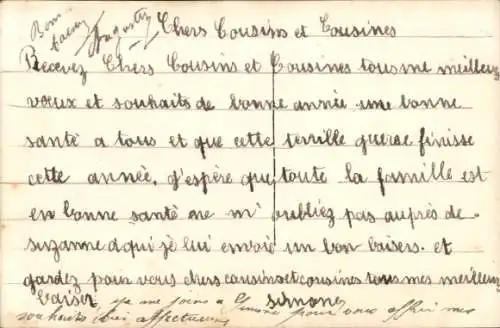 Bon
Chers Cousins et Cousines
Recevez Chers Cousins et Cousines tous me meilleurs
vœux et souhaits de bonne année une bonne
santé a tous et que cette terrille guerre finisse
cette année. J'espère que toute la famille est
en bonne santé ne m' oubliez pas auprès de
suzanne a qui je lui envoie un bon baisers. et
gardez pour vous chers cousins et cousines tous mes meilleurs
baiser simone
je me joins a Simone pour vous offrir mes
souhaits affectueux